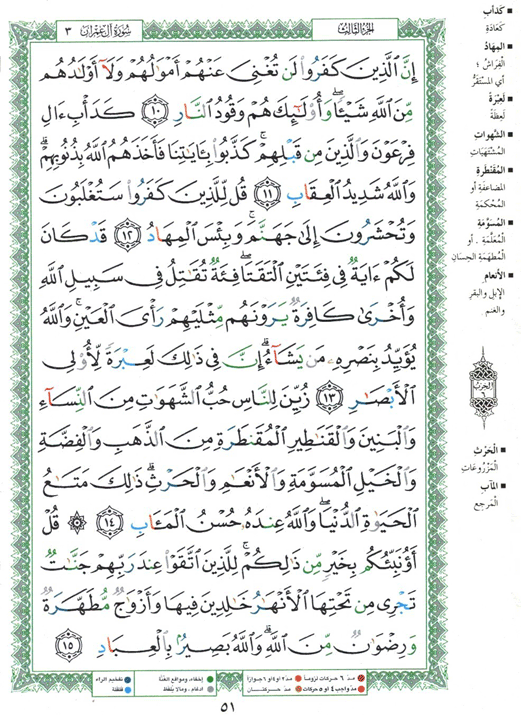 الجزء الثالث
سورة آل عمران ٣
إِنَّ ٱلَّذِينَ كَفَرُوا۟ لَن تُغْنِىَ عَنْهُمْ أَمْوَٰلُهُمْ وَلَآ أَوْلَٰدُهُم
مِّنَ ٱللَّهِ شَيْـًٔا ۖ وَأُو۟لَٰٓئِكَ هُمْ وَقُودُ ٱلنَّارِ ١٠ كَدَأْبِ ءَالِ
فِرْعَوْنَ وَٱلَّذِينَ مِن قَبْلِهِمْ ۚ كَذَّبُوا۟ بِـَٔايَٰتِنَا فَأَخَذَهُمُ ٱللَّهُ بِذُنُوبِهِمْ ۗ
وَٱللَّهُ شَدِيدُ ٱلْعِقَابِ ١١ قُل لِّلَّذِينَ كَفَرُوا۟ سَتُغْلَبُونَ
وَتُحْشَرُونَ إِلَىٰ جَهَنَّمَ ۚ وَبِئْسَ ٱلْمِهَادُ ١٢ قَدْ كَانَ
لَكُمْ ءَايَةٌ فِى فِئَتَيْنِ ٱلْتَقَتَا ۖ فِئَةٌ تُقَٰتِلُ فِى سَبِيلِ ٱللَّهِ
وَأُخْرَىٰ كَافِرَةٌ يَرَوْنَهُم مِّثْلَيْهِمْ رَأْىَ ٱلْعَيْنِ ۚ وَٱللَّهُ
يُؤَيِّدُ بِنَصْرِهِۦ مَن يَشَآءُ ۗ إِنَّ فِى ذَٰلِكَ لَعِبْرَةً لِّأُو۟لِى
ٱلْأَبْصَٰرِ ١٣ زُيِّنَ لِلنَّاسِ حُبُّ ٱلشَّهَوَٰتِ مِنَ ٱلنِّسَآءِ
وَٱلْبَنِينَ وَٱلْقَنَٰطِيرِ ٱلْمُقَنطَرَةِ مِنَ ٱلذَّهَبِ وَٱلْفِضَّةِ
وَٱلْخَيْلِ ٱلْمُسَوَّمَةِ وَٱلْأَنْعَٰمِ وَٱلْحَرْثِ ۗ ذَٰلِكَ مَتَٰعُ
ٱلْحَيَوٰةِ ٱلدُّنْيَا ۖ وَٱللَّهُ عِندَهُۥ حُسْنُ ٱلْمَـَٔابِ ١٤ ۞ قُلْ
أَؤُنَبِّئُكُم بِخَيْرٍ مِّن ذَٰلِكُمْ ۚ لِلَّذِينَ ٱتَّقَوْا۟ عِندَ رَبِّهِمْ جَنَّٰتٌ
تَجْرِى مِن تَحْتِهَا ٱلْأَنْهَٰرُ خَٰلِدِينَ فِيهَا وَأَزْوَٰجٌ مُّطَهَّرَةٌ
وَرِضْوَٰنٌ مِّنَ ٱللَّهِ ۗ وَٱللَّهُ بَصِيرٌۢ بِٱلْعِبَادِ ١٥
■ كَدَأْبِ
كَعَادَةِ
■ المِهَادُ
الفِرَاشُ ؛
أي المُستَقَرُّ
■ لَعِبْرَةً
لَعِظَةً
■ الشَّهَوَاتِ
المُشْتَهَيَاتِ
■ المُقَنْطَرَةِ
المُضَاعَفَةِ أو
المُحْكَمَةِ
■ المُسَوَّمَةِ
المُعَلَّمَةِ . أو
المُطَهَّمَةِ الحِسَانِ
■ الأنعام
الإبل والبقر
والغنم
الحزب
٦
■ الحَرْثِ
المَزْرُوعَاتِ
■ المآبِ
المَرْجِعِ
مدّ ٦ حركات لزوماً
مدّ ٢ او ٤ او ٦ جوازاً
إخفاء، ومواقع الغُنَّة
تفخيم الراء
مدّ واجب ٤ او ٥ حركات
مدّ حركتان
ادغام، وما لا يُلفظ
قلقلة
٥١